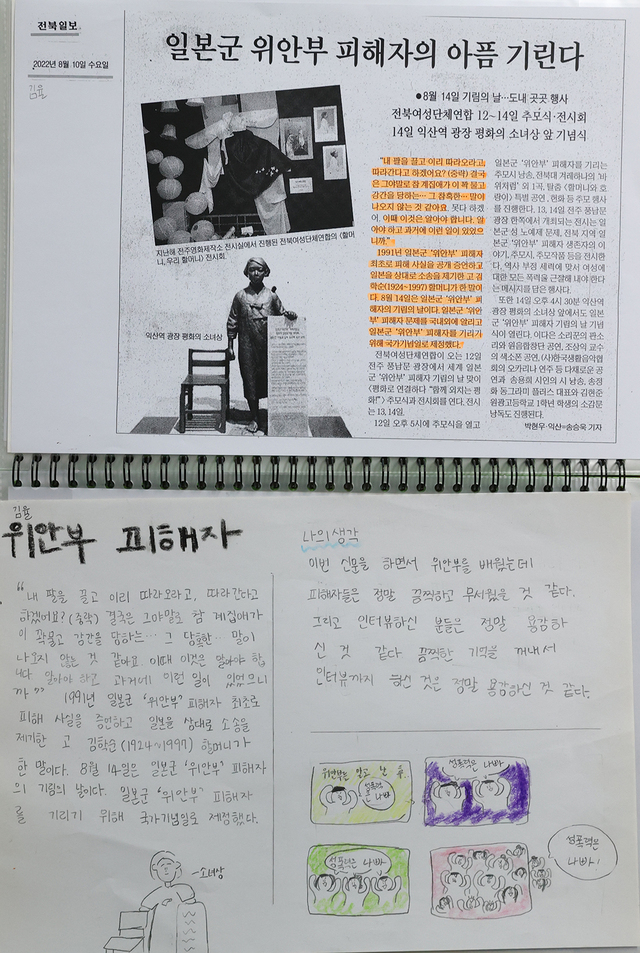 전북일보
2022년 8월 10일 수요일
김율
일본군 위안부 피해자의 아픔 기린다
●8월 14일 기림의 날…도내 곳곳 행사
전북여성단체연합 12~14일 추모식·전시회
14일 익산역 광장 평화의 소녀상 앞 기념식
지난해 전주영화제작소 전시실에서 진행된 전북여성단체연합의 <할머
니, 우리 할머니> 전시회.
익산역 광장 평화의 소녀상
"내 팔을 끌고 이리 따라오라고,
따라간다고 하겠어요? (중략) 결국
은 그야말로 참 계집애가 이 꽉 물고
강간을 당하는… 그 참혹한… 말이
나오지 않는 것 같아요. 못다 하겠
어. 이때 이것은 알아야 합니다. 알
아야 하고 과거에 이런 일이 있었으
니까."
1991년 일본군 '위안부' 피해자
최초로 피해 사실을 공개 증언하고
일본을 상대로 소송을 제기한 고 김
학순(1924~1997) 할머니가 한 말이
다. 8월 14일은 일본군 '위안부' 피
해자의 기림의 날이다. 일본군 '위안
부' 피해자 문제를 국내외에 알리고
일본군 '위안부' 피해자를 기리기
위해 국가기념일로 제정했다.
전북여성단체연합이 오는 12일
전주 풍남문 광장에서 세계 일본
군 '위안부' 피해자 기림의 날 맞이
<평화로 연결하다 "함께 외치는 평
화!"> 추모식과 전시회를 연다. 전시
는 13, 14일.
12일 오후 5시에 추모식을 열고
일본군 '위안부' 피해자를 기리는
추모시 낭송, 전북대 겨레하나의 '바
위처럼' 외 1곡, 탈춤 <할머니와 호
랑이> 특별 공연, 헌화 등 추모 행사
를 진행한다. 13, 14일 전주 풍남문
광장 한쪽에서 개최되는 전시는 일본
군 성 노예제 문제, 전북 지역 일
본군 '위안부' 피해자 생존자의 이
야기, 추모시, 추모작품 등을 전시한
다. 역사 부정 세력에 맞서 여성에
대한 모든 폭력을 근절해 내야 한다
는 메시지를 담은 행사다.
또한 14일 오후 4시 30분 익산역
광장 평화의 소녀상 앞에서도 일본
군 '위안부' 피해자 기림의 날 기념
식이 열린다. 이다은 소리꾼의 판소
리와 원음합창단 공연, 조상익 교수
의 색소폰 공연, (사)한국생활음악협
회의 오카리나 연주 등 다채로운 공
연과 송용희 시인의 시 낭송, 송정
화 동그라미 플러스 대표와 김현준
원광고등학교 1학년 학생의 소감문
낭독도 진행된다.
박현우·익산=송승욱 기자
김율
위안부 피해자
"내 팔을 끌고 이리 따라오라고, 따라간다고
하겠어요? (중략) 결국은 그야말로 참 계집애가
이 꽉물고 강간을 당하는… 그 참혹한… 말이
나오지 않는 것 같아요. 이때 이것은 알아야 합
니다 알아야 하고 과거에 이런 일이 있었으니
까" 1991년 일본군 '위안부' 피해자 최초로
피해 사실을 증언하고 일본을 상대로 소송을
제기한 고 김학순(1924~1997) 할머니가
한 말이다. 8월 14일은 일본군 '위안부' 피해자
의 기림의 날이다. 일본군 '위안부' 피해자
를 기리기 위해 국가기념일로 제정했다.
-소녀상
나의생각
이번 신문을 하면서 위안부를 배웠는데
피해자들은 정말 끔찍하고 무서웠을 것 같다.
그리고 인터뷰하신 분들은 정말 용감하
신 것 같다 끔찍한 기억을 꺼내서
인터뷰까지 하신 것은 정말 용감하신 것 같다.
위안부는 알고 난 후..
성폭력은 나빠
성폭력은 나빠
성폭력은 나빠
성폭력은
나빠!